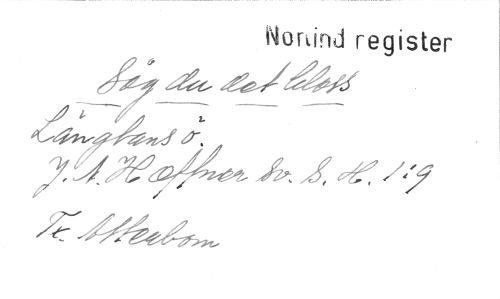 Norlind register
Såg du det bloss
Längtans ö.
J. A. Hæffner Sv. S. H. 1:9
Tx. Atterbom